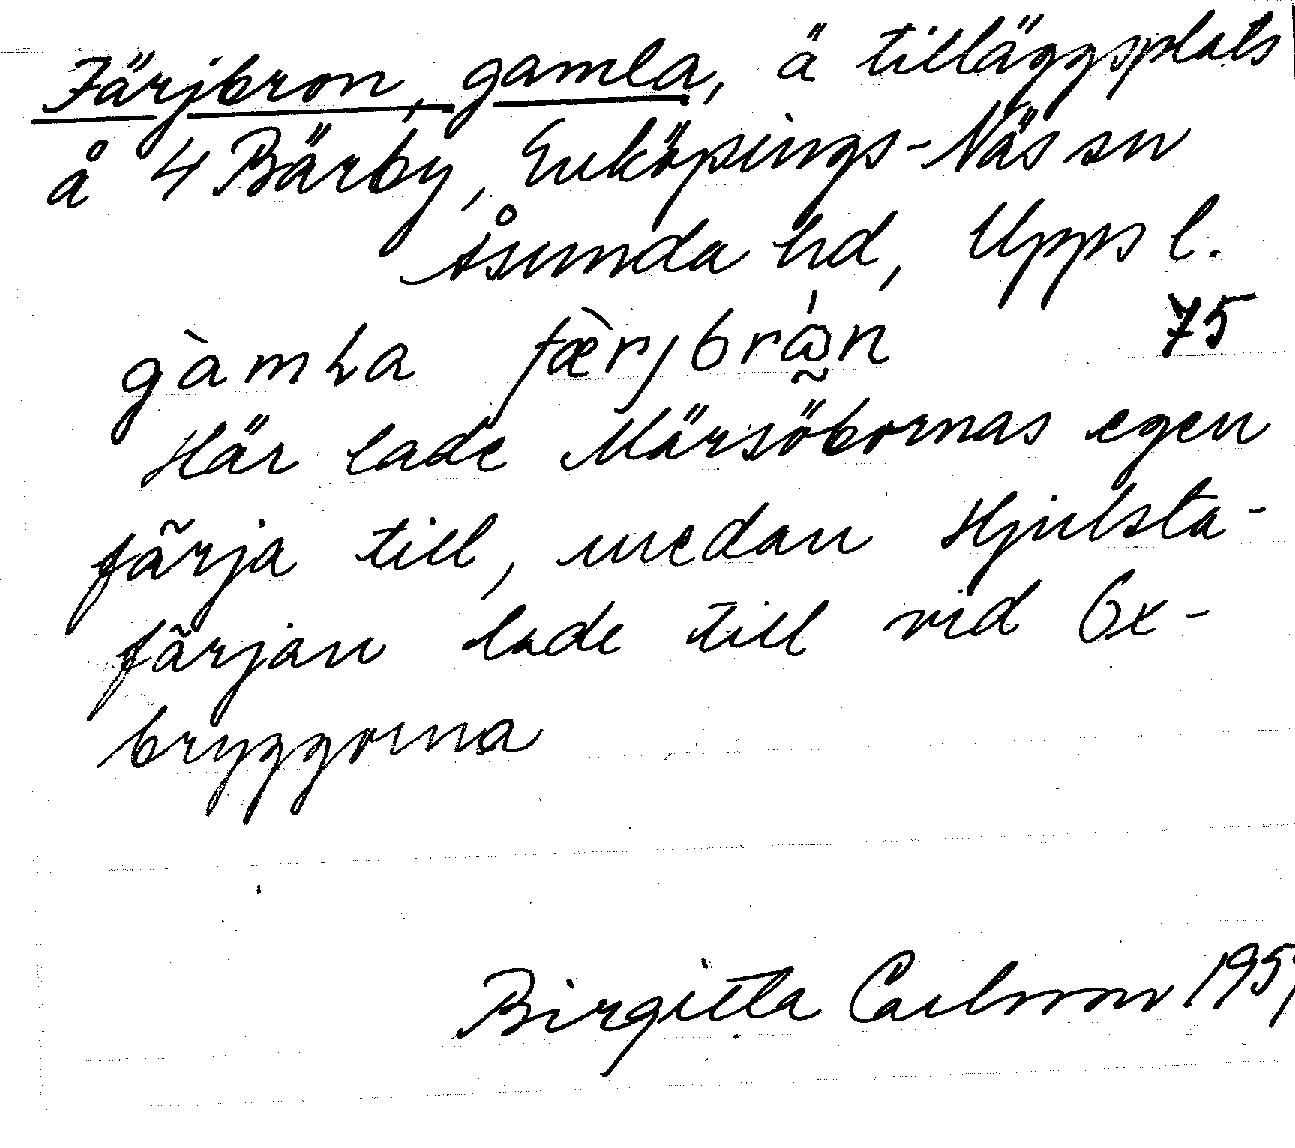 Färjbron, gamla, ä tilläggsplats
å 4 Bärby, Enköpings-Näs sn
Åsunda hd, Uppl.
75
Här lade Märsöbornas egen
färja till, medan Hjulsta-
färjan lade till vid Ox-
bryggorna
Birgitta Carlsson